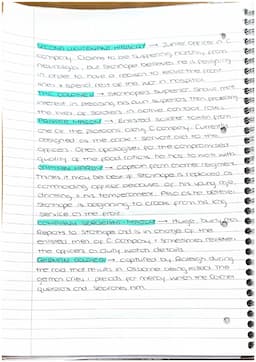 SECOND LIEUTENANT HIBBERT → Junior Officer in C
Company. Claims to be suffering horribly from
neuralgia, but Stanhope believes he is faking
in order to have a reason to leave the front
lines & spend rest of the war in hospital.
THE COLONEL → Stanhope's superior. Shows more
interest in pleasing his own superiors than protecting
the lives of soldiers in
PRIVATE MASON → Enlisted soldier taken from
one of the platoons in C Company. Currently
designated as the cook & servant to the
officers. Often apologises for the compromised
quality of the food rations he has to work with.
CAPTAIN HARDY → Captain from another regiment.
Thinks it may be best if Stanhope is replaced as
commanding officer because of his young age,
drinking & his temperament. Also claims
Stanhope is beginning to crack from his long
service at the front.
COMPANY SERGEANT-MAJOR → Huge, burly man
Reports to Stanhope and is in charge of the
enlisted men of C Company, & sometimes
the officers on duty watch details.
GERMAN SOLDIER → captured by Raleigh during
the raid that results in Osborne being killed. The
German cries & pleads for mercy when the Colonel
questions and searches him.